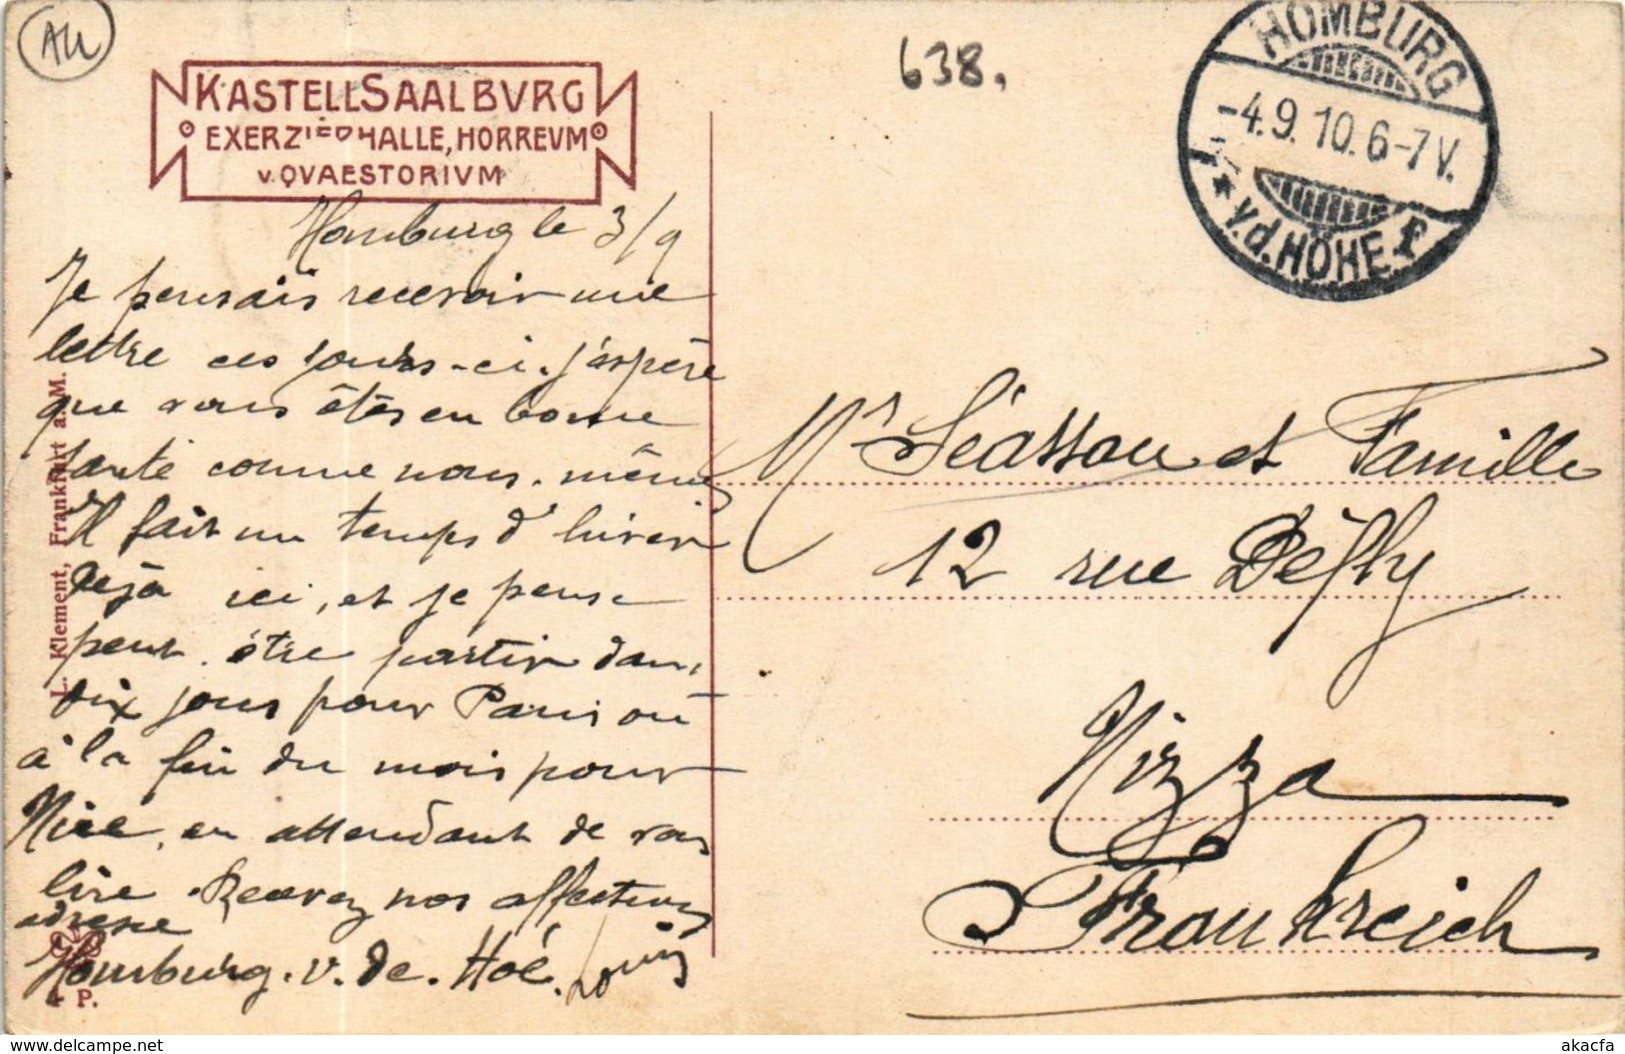 AK
KASTELL SAALBVRG
EXERZIERHALLE, HORREVM
v. QVAESTORIVM
638.
HOMBURG
-4.9.10. 6-7V.
v.d. HÖHE f
Homburg le 3/9
Je pensais recevoir une
lettre ces jours-ci. j'espère
que vous êtes en bonne
santé comme nous-mêmes
Il fait un temps d'hiver
déjà ici, et je pense
peut-être partir dans
dix jours pour Paris ou
à la fin du mois pour
Nice, en attendant de vous
lire. Recevez nos affectueux
adresse
Homburg. v. de. Hoé. Louis
Mr Séassau et Famille
12 rue Défly
Nizza
Frankreich
L. Klement, Frankfurt a. M.
4 P.
delcampe.net
akacfa